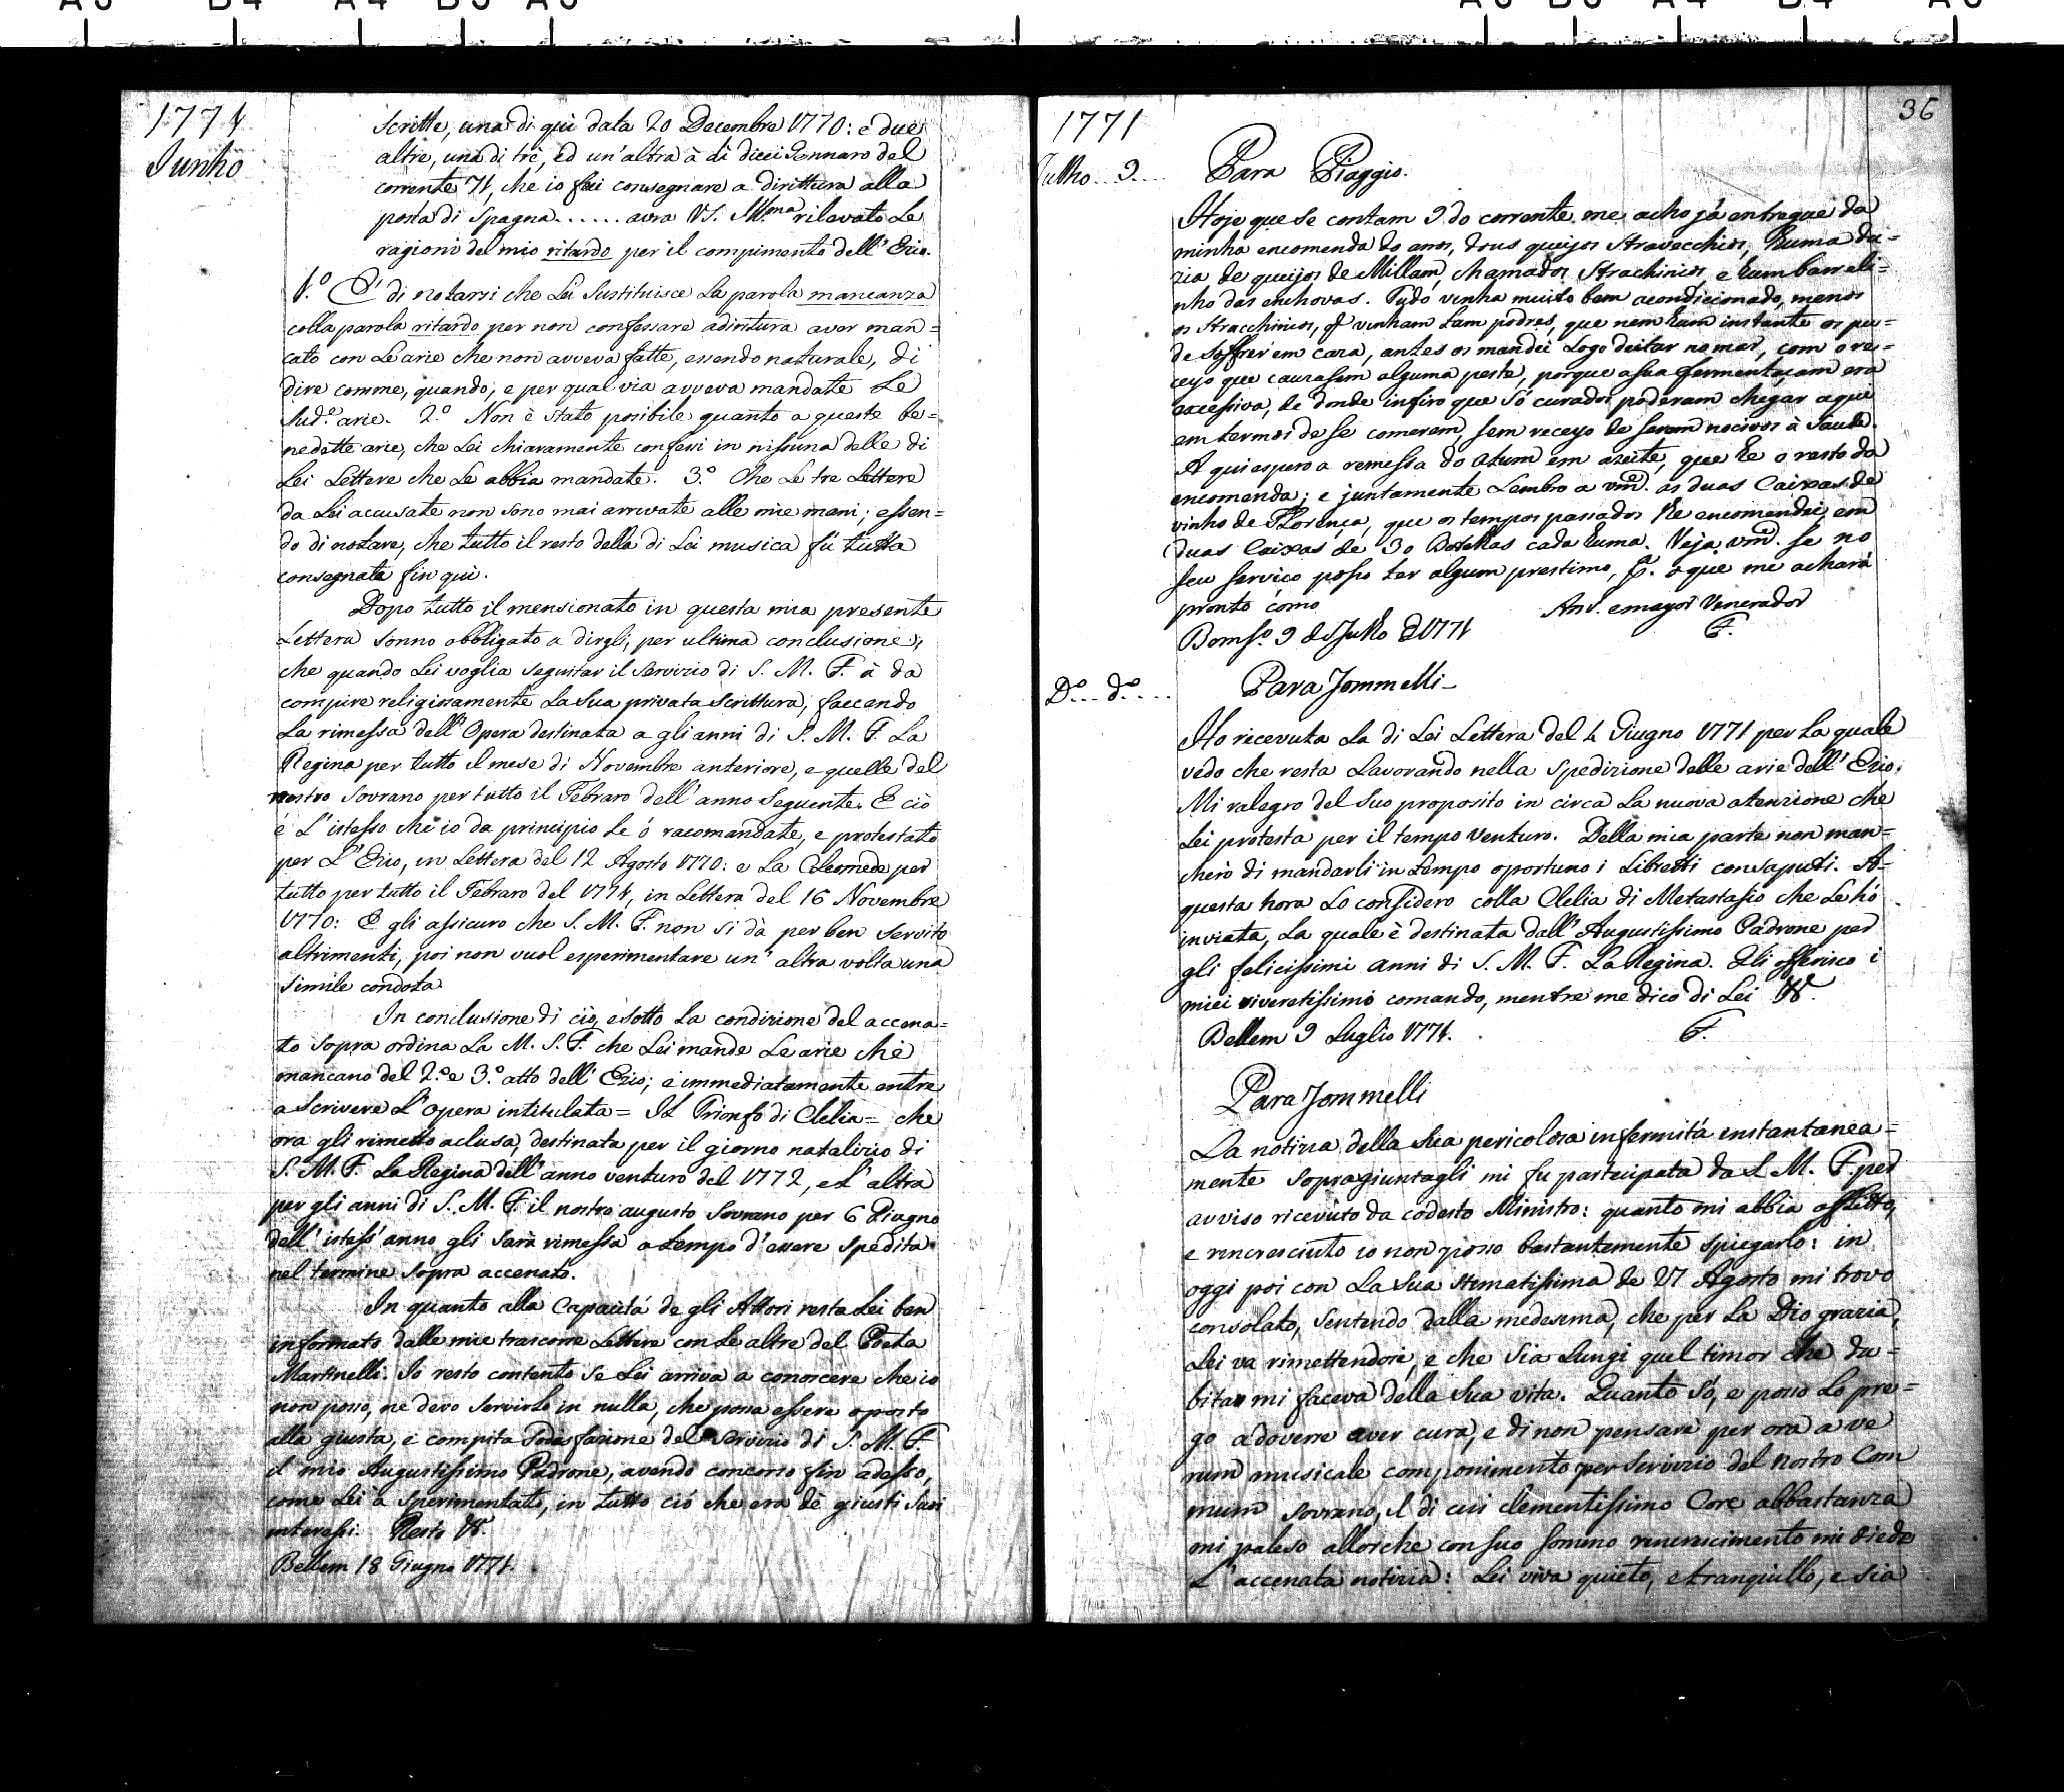 1771
Junho
scritte, una di qui data 20 Decembre 1770: e due
altre, una di trè, ed un'altra à di dieci Gennaro del
corrente 71, che io feci consegnare a dirittura alla
posta di Spagna...... avra VS. Ill.ma rilevato Le
ragioni del mio ritardo per il compimento dell'Ezio.
1.º E' di notarsi che Lei Sustituisce La parola mancanza
colla parola ritardo per non confessare adiritura aver man=
cato con Le arie che non avveva fatte, essendo naturale, di
dire comme, quando, e per qual via avveva mandate Le
Sud.e arie. 2.º Non è stato posibile quanto a queste be=
nedette arie, che Lei chiaramente confessi in nissuna delle di
Lei Lettere che Le abbia mandate. 3.º Che Le tre Lettere
da Lei accusate non sono mai arrivate alle mie mani; essen=
do di notare, che tutto il resto della di Lei musica fù tutta
consegnata fin qui.
Dopo tutto il mensionato in questa mia presente
Lettera sonno obbligato a dirgli, per ultima conclusione,
che quando Lei voglia seguitar il Servizio di S. M. F. à da
compire religiosamente La sua privata Scrittura, faccendo
La rimessa dell'Opera destinata a gli anni di S. M. F. La
Regina per tutto il mese di Novembre anteriore, e quelle del
nostro Sovrano per tutto il Febraro dell'anno Seguente. E ciò
é L'istesso che io da principio Le ó racomandate, e protestato
per L'Ezio, in Lettera del 12 Agosto 1770: e La Cleonede per
tutto per tutto il Febraro del 1771, in Lettera del 16 Novembre
1770: E gli assicuro che S. M. F. non si dà per ben Servito
altrimenti, poi non vuol esperimentare un'altra volta una
Simile condota.
In conclusione di ció, e sotto La condizione del accena=
to Sopra ordina La M. S. F. che Lei mande Le arie che
mancano del 2.º e 3.º atto dell'Ezio; e immediatamente entre
a Scrivere L'opera intitulata= Il Trionfo di Clelia= che
ora gli rimetto aclusa, destinata per il giorno natalizio di
S. M. F. La Regina dell'anno venturo del 1772, e L'altra
per gli anni di S. M. F. il nostro augusto Sovrano per 6 Giugno
dell'istess'anno gli Sarà rimessa a tempo d'essere Spedita
nel termine Sopra accenato.
In quanto alla Capacitá de gli Attori resta Lei ben
informato dalle mie trascorse Lettere con Le altre del Poeta
Martinelli. Io resto contento Se Lei arriva a conoscere che io
non posso, ne devo Servirlo in nulla, che possa essere oposto
alla giusta, e compita Sodasfazione del Servizio di S. M. F.
il mio Augustissimo Padrone, avendo concorso fin adesso,
come Lei à Sperimentato, in tutto ció che era dè giusti Suoi
interessi. Resto &.
Bellem 18 Giugno 1771.
36
1771
Julho.. 9...
Para Piaggio.
Hoje que Se contam 9 do corrente me acho já entregue da
minha encomenda do anos, dous queijos Stravecchios, huma du=
zia de queijos de Millam, chamados Strachinios, e hum barreli=
nho das enchovas. Tudo vinha muito bem acondicionado, menos
os Stracchinios, q vinham tam podres, que nem hum instante os pu=
de Soffrer em caza, antes os mandei Logo deitar no mar, com o re=
ceyo que cauzasem alguma peste, porque a sua fermentaçam era
excessiva, de donde infiro que só curados poderam chegar aqui
em termos de Se comerem, sem receyo de serem nocivos à Saude.
Aqui espero a remessa do Atum em azeite, que he o resto da
encomenda; e juntamente Lembro a vm.ce as duas Caixas de
vinho de Florença, que os tempos passados lhe encomendei, em
duas Caixas de 30 Botelhas cada huma. Veja vm.ce Se no
seu Serviço posso ter algum prestimo, p.a o que me achará
pronto como
Am.º e mayor Venerador
Bom S.º 9 de Julho de 1771
F.
D.º... d.º...
Para Jommelli_
Ho ricevuta La di Lei Lettera del 4 Giugno 1771 per La quale
vedo che resta Lavorando nella Spedizione delle arie dell'Ezio.
Mi ralegro del Suo proposito in circa La nuova atenzione che
Lei protesta per il tempo venturo. Della mia parte non man=
cherò di mandarli in tempo oportuno i Libretti consaputi. A=
questa hora Lo considero colla Clelia di Metastasio che Le hó
inviata, La quale è destinata dall'Augustissimo Padrone per
gli felicissimi anni di S. M. F. La Regina. Gli offerisco i
miei riveretissimi comando, mentre me dico di Lei &.
Bellem 9 Luglio 1771.
F.
Para Jommelli
La notizia della Sua pericolosa infermitá instantanea=
mente Sopragiuntagli mi fu partecipata da S. M. F. per
avviso ricevuto da codesto Ministro: quanto mi abbia afflitto,
e rincresciuto io non posso bastantemente Spiegarlo: in
oggi poi con La Sua Stimatissima de 27 Agosto mi trovo
consolato, Sentendo dalla medesima, che per La Dio grazia,
Lei va rimettendosi, e che Sia Lungi quel timor che du=
bitar mi faceva della Sua vita. Quanto Só, e posso Lo pre=
go adoverne aver cura, e di non pensare per ora a ve
run musicale componimento per Servizio del nostro Com
mum Sovrano, il di cui clementissimo Core abbastanza
mi paleso allorche con Suo Sommo rincrescimento mi diede
L'accenata notizia: Lei viva quieto, e tranquillo, e Sia